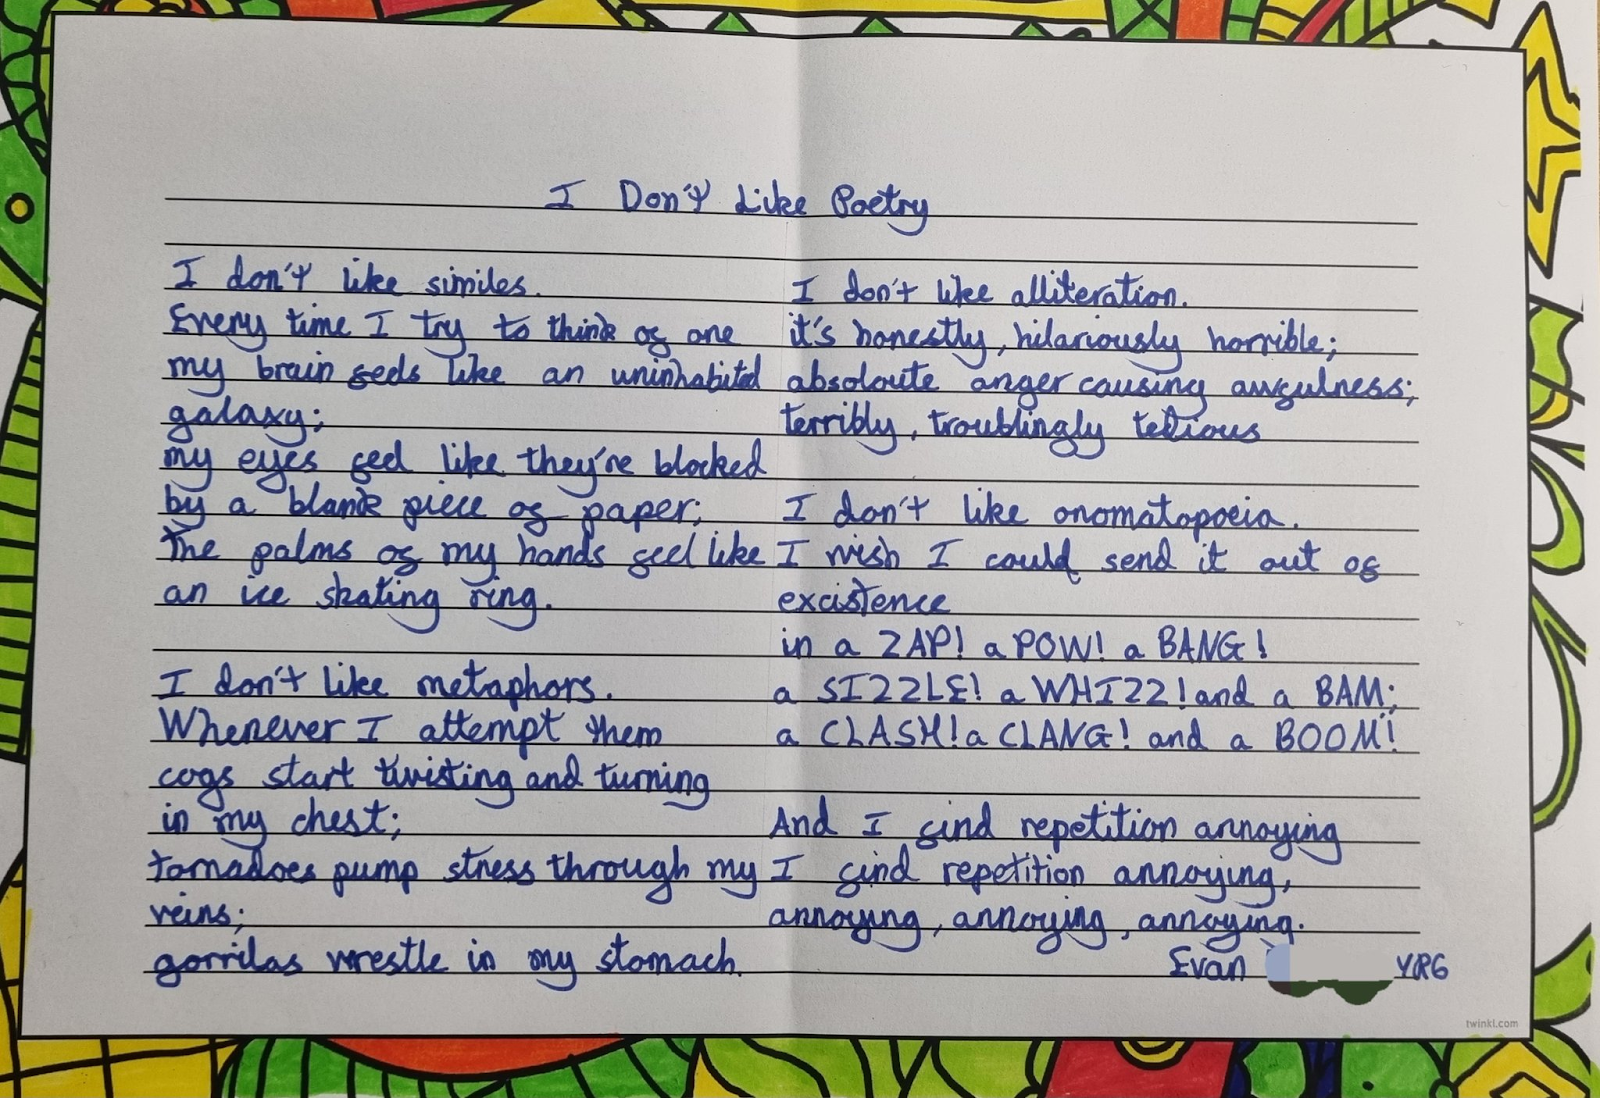 I Don't Like Poetry
I don't like similes.
Every time I try to think of one
my brain feels like an uninhabited
galaxy;
my eyes feel like they're blocked
by a blank piece of paper;
The palms of my hands feel like
an ice skating ring.
I don't like metaphors.
Whenever I attempt them
cogs start twisting and turning
in my chest;
tornadoes pump stress through my
veins;
gorrilas wrestle in my stomach.
I don't like alliteration.
it's honestly, hilariously horrible;
absoloute anger causing awfulness;
terribly, troublingly tedious
I don't like onomatopoeia.
I wish I could send it out of
excistence
in a ZAP! a POW! a BANG!
a SIZZLE! a WHIZZ! and a BAM;
a CLASH! a CLANG! and a BOOM!
And I find repetition annoying
I find repetition annoying,
annoying, annoying, annoying.
Evan YR6
twinkl.com